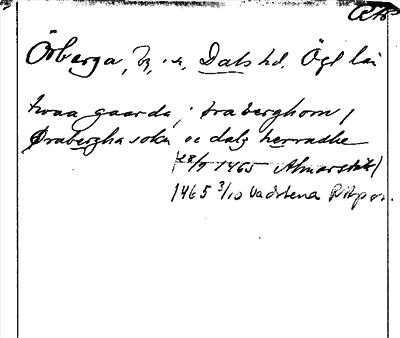 Örberga, by, sn, Dals hd. Ögl län
twaa gaarda i øraberghom /
Ørabergha sokn oc dalz herradhe
(28/9 1465 Almarstäk)
1465 3/10 Vadstena RApn.